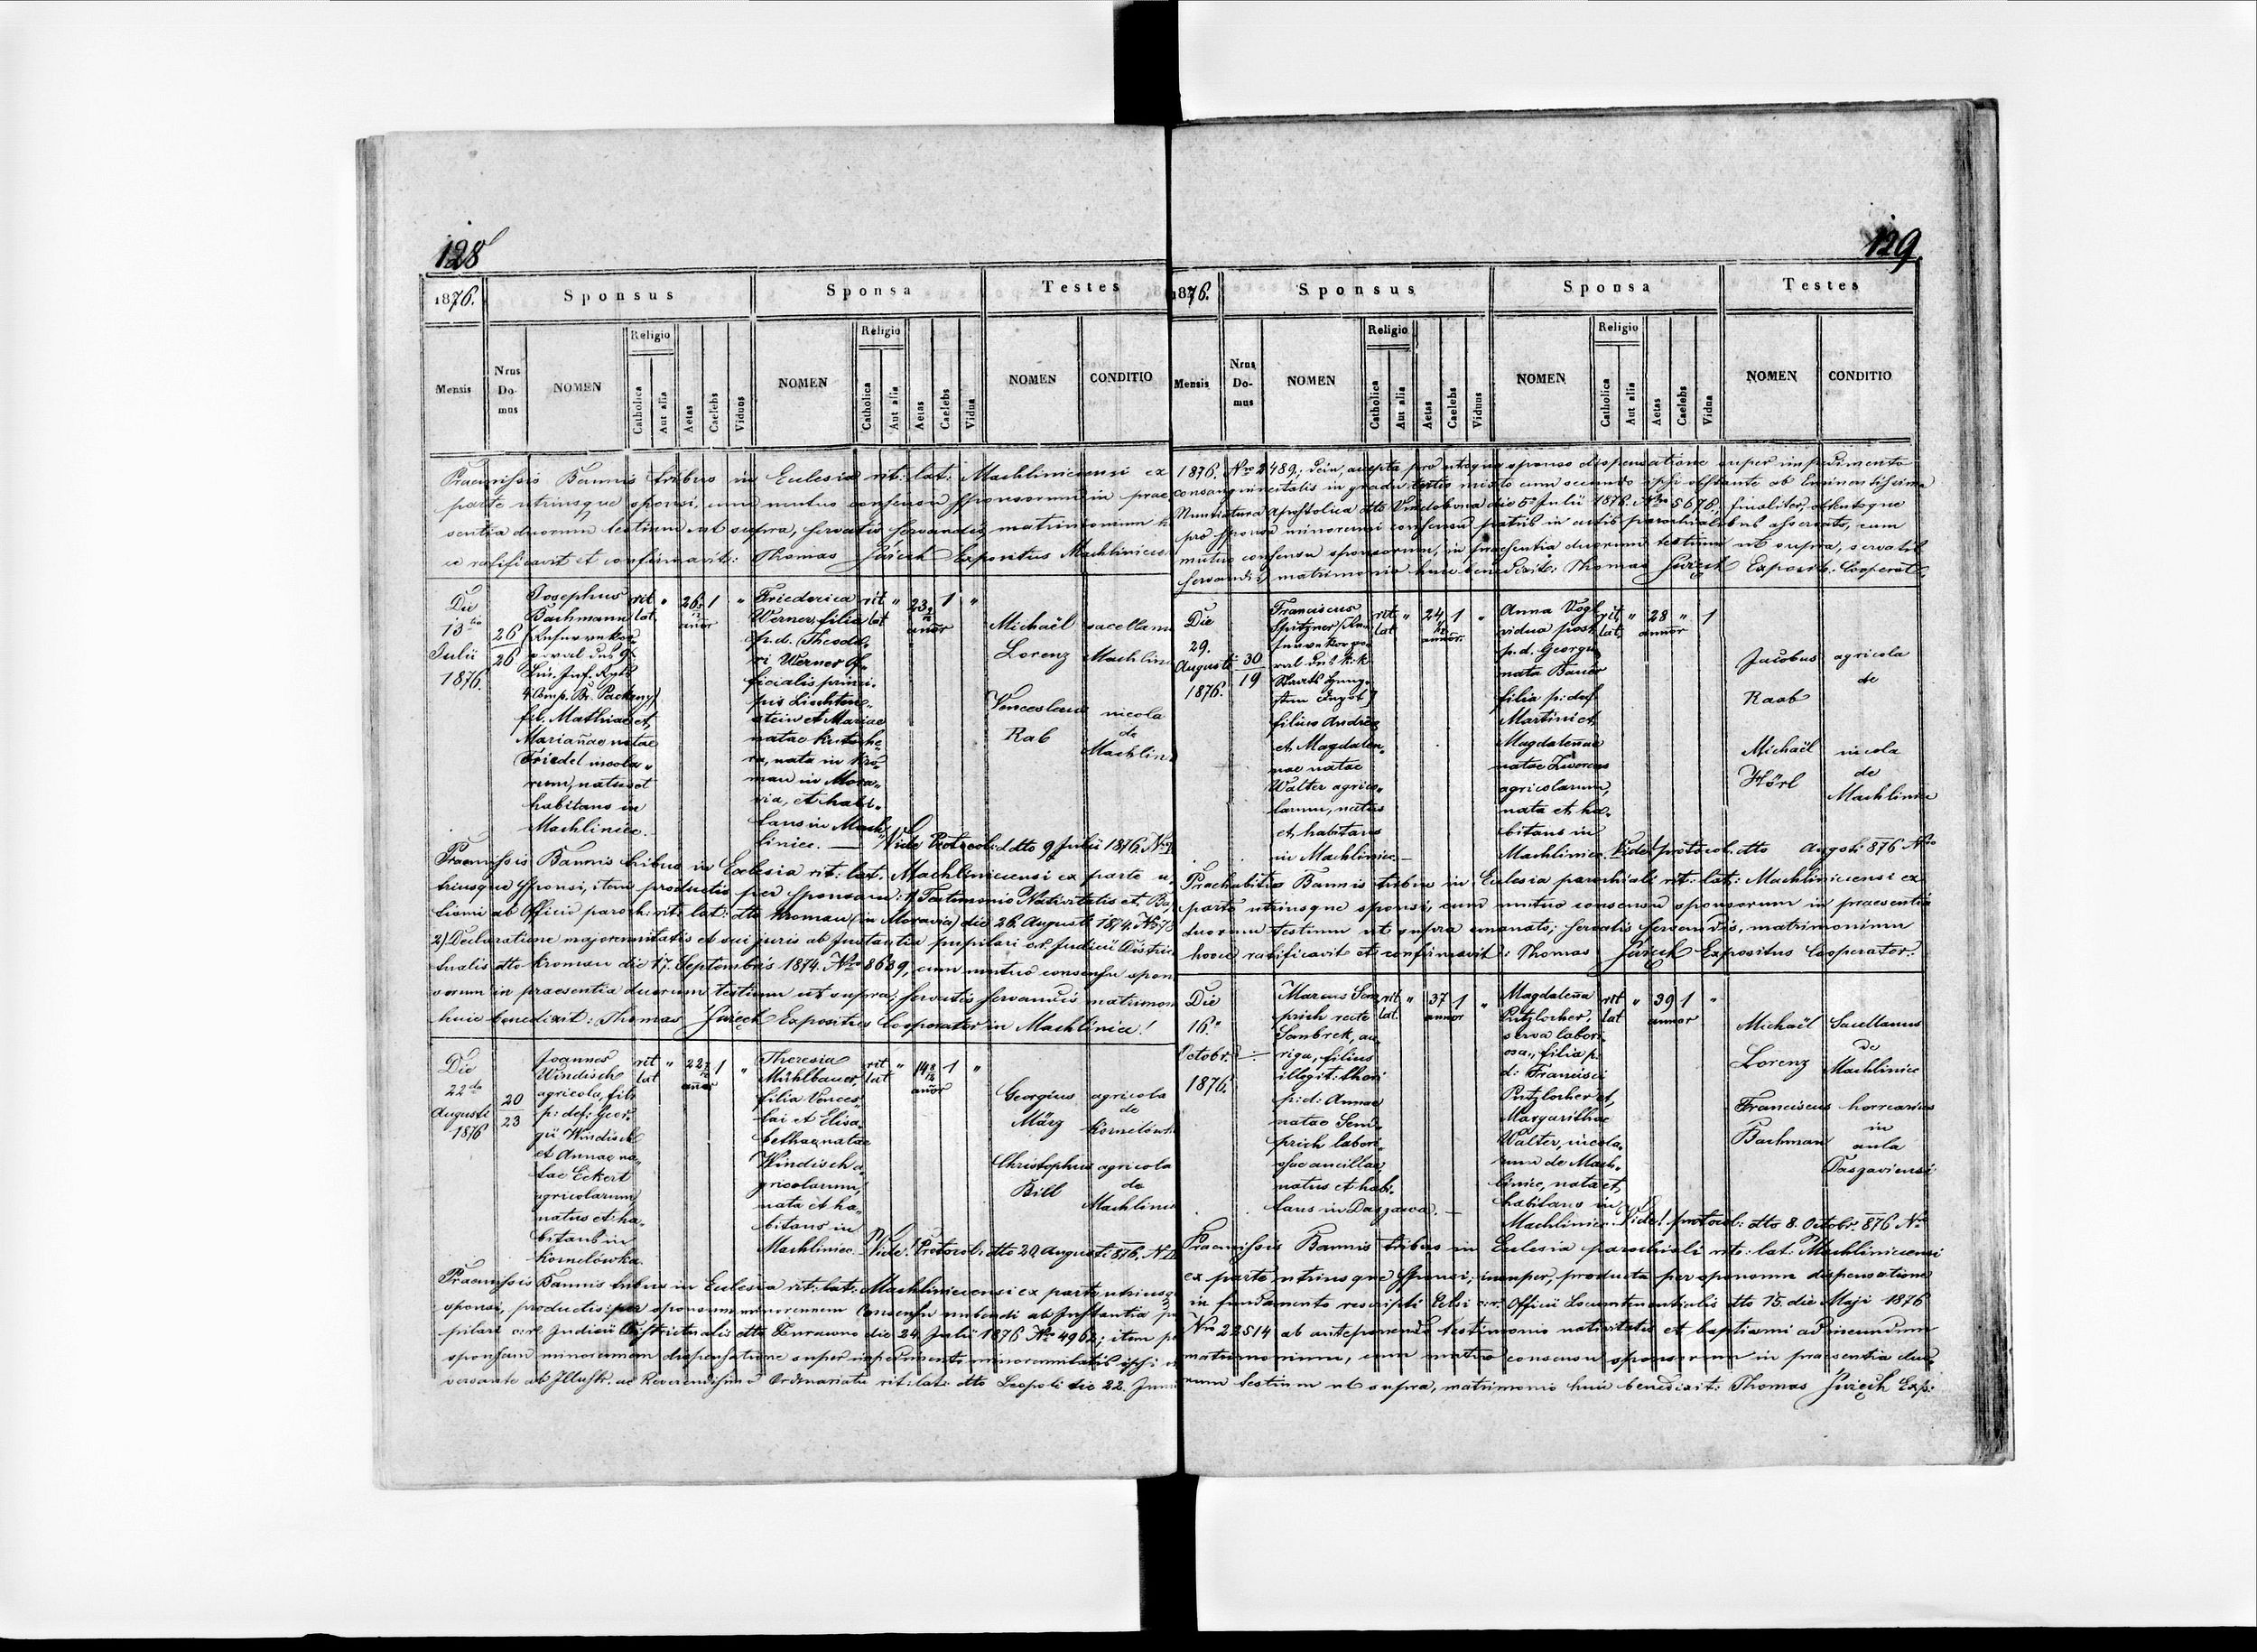 128
1876. Sponsus Sponsa Testes
Mensis Nrus Domus NOMEN Religio Catholica Aut alia Aetas Caelebs Viduus NOMEN Religio Catholica Aut alia Aetas Caelebs Vidua NOMEN CONDITIO
Praemissis Bannis tribus in Eclesia rit: lat: Machliniecensi ex
parte utriusque sponsi, cum mutuo consensu Sponsorum in prae
sentia duorum testium ut supra, servatis servandis, matrimonium h
ce ratificavit et confirmavit: Thomas Expositus
Die
13tio
Julii
1876.
26
26
Josephus
Bachmann
4 Comp. Br. Packeny)
fil. Mathiae et
Mariañae natae
Friedel incola„
rum, natus et
habitans in
Machliniec.
rit
lat.
"
26
annor
1
"
Friederica
Werner, filia
p. d. Theodo„
ri Werner Of„
ficialis princi„
pis Liechten„
stein et Mariae
natae
ra, nata in Kro„
mau in Mora„
via, et habi„
tans in Mach„
liniec. —
rit
lat
"
23
annor
1
"
Michaël
Lorenz
sacellanu
Machlinie
Venceslaus
Rab
incola
de
Machlinie
Vide Protocol: dto 9 Julii 1876. No
Praemissis Bannis tribus in Eclesia rit: lat: Machliniecensi ex parte u„
triusque Sponsi, item productis per Sponsam: 1) Testimonio Nativitatis et Bap
tismi ab Officio paroch: rit: lat: dto Kromau (in Moravia) die 26. August 1874. No 73
2) Declaratione majorennitatis et sui juris ab Instantia pupilari c.r. Judicii Distric
tualis dto Kromau die 17. Septembris 1874. No 8689, cum mutuo consensu spon
sorum in praesentia duorum testium ut supra, servatis servandis matrimon
huic benedixit: Thomas Expositus Cooperator in Machliniec!
Die
22do
Augusti
1876
20
23
Joannes
Windisch
agricola, fil:
p: def: Geor„
gii Windisch
et Annae na„
tae Eckert
agricolarum,
natus et ha„
bitans in
Kornelówka.
rit
lat
"
22
annor
1
"
Theresia
Mühlbauer,
filia Vences„
lai et Elisa„
bethae natae
Windisch a„
gricolarum,
nata et ha„
bitans in
Machliniec.
rit
lat
"
14 8/12
annor
1
"
Georgius
März
agricola
de
Kornelówk
Christophus
Bill
agricola
de
Machlinie
Vide! Protocol: dto 20 Augusti 876. N
Praemissis Bannis tribus in Eclesia rit: lat: Machliniecensi ex parte utriusq
sponsi, productis: per sponsum minorennem Consensu nubendi ab Instantia pu
pilari c:r: Judicii Districtualis dto Zurawno die 24 Julii 1876 No 4962; item p
sponsam minorennem dispensatione super impedimento minorennitatis ipsi
versante ab Illustr. ac Reverendissimo Ordinariatu rit: lat: dto Leopoli die 22. Juni
129.
1876. Sponsus Sponsa Testes
Mensis Nrus Domus NOMEN Religio Catholica Aut alia Aetas Caelebs Viduus NOMEN Religio Catholica Aut alia Aetas Caelebs Vidua NOMEN CONDITIO
1876. Nro 2489.; dein, accepta pro utroque sponso dispensatione super impedimento
consanguineitatis in gradu tertio mixto cum secundo ipsi obstante ab Eminentissima
Nuntiatura Apostolica dto Vindobona die 5 Julii 1876. No 5676, finaliter, obtentoque
pro sponsa minorenni consensu patris in actis parochialibus asservato, cum
mutuo consensu sponsorum, in praesentia duorum testium ut supra, servatis
servandis matrimonio huic benedixit: Thomas Exposit: Cooperat:
Die
29.
Augusti
1876.
30
19
Franciscus
Spitzner
filius Andreae
et Magdalen„
nae natae
Walter agrico„
larum, natus
et habitans
in Machliniec. —
rit.
lat
"
24
annor.
1
"
Anna Vogl
vidua post
p. d. Georgio
nata Bauer
filia p: def
Martini et
Magdaleñae
natae
agricolarum,
nata et ha„
bitans in
Machliniec.
rit.
lat.
"
28
annor
"
1
Jacobus
Raab
agricola
de
Michaël
Hörl
incola
de
Machliniec
Vide! protocol. dto Augusti 876 No
Praehabitis Bannis tribus in Eclesia parochiali rit: lat: Machliniecensi ex
parte utriusque sponsi, cum mutuo consensu sponsorum in praesentia
duorum testium ut supra emanato, servatis servandis, matrimonium
hocce ratificavit et confirmavit: Thomas Expositus Cooperator.
Die
16.
Octobr.
1876.
÷
Marcus Sem„
prich recte
Sombrek, au„
riga, filius
illegit: thori
p: d: Annae
natae Sem„
prich labori„
osae ancillae,
natus et habi„
tans in Daszawa. —
rit
lat.
"
37
annor
1
"
Magdaleña
Putzlocher,
serva labori„
osa, filia p.
d: Francisci
Putzlocher et
Margarithae
Walter, incola„
rum de Mach„
liniec, nata et
habitans in
Machliniec.
rit
lat
"
39
annor
1
"
Michaël
Lorenz
Sacellanus
de
Machliniec
Franciscus
Bachman
horrearius
in
aula
Daszaviensi
Vide! protocol: dto 8. Octobr. 876 No
Praemissis Bannis tribus in Eclesia parochiali rit: lat: Machliniecensi
ex parte utriusque Sponsi; insuper, producta per sponsum dispensatione
in fundamento rescripti Celsi c:r: Officii Locumtenentialis dto 15. die Maji 1876
Nro 22514 ab anteponendo testimonio nativitatis et baptismi ad ineundum
matrimonium, cum mutuo consensu sponsorum in praesentia duo„
rum testium ut supra, matrimonio huic benedixit: Thomas Exp: